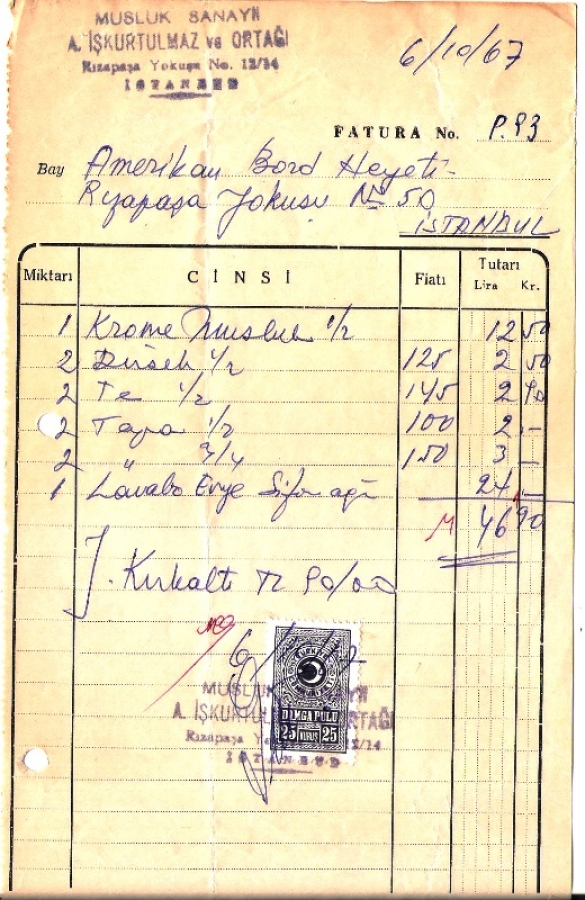 MUSLUK SANAYİİ
A. İŞKURTULMAZ ve ORTAĞI
Rızapaşa Yokuşu No. 12/14
İSTANBUL
6/10/67
FATURA No. P.93
Bay Amerikan Bord Heyeti
Rızapaşa Yokuşu No 50
İSTANBUL
Miktarı CİNSİ Fiatı Tutarı
Lira Kr.
1 Krome Musluk 1/2 12 50
2 Dirsek 1/2 125 2 50
2 Te 1/2 145 2 90
2 Tapa 1/2 100 2 -
2 " 3/4 150 3 -
1 Lavabo Evye Sifonağı 24 -
46 90
Y. Kırkaltı TL 90/00
DAMGA PULU
25 KURUŞ 25
MUSLUK SANAYİİ
A. İŞKURTULMAZ ve ORTAĞI
Rızapaşa Yokuşu No. 12/14
İSTANBUL